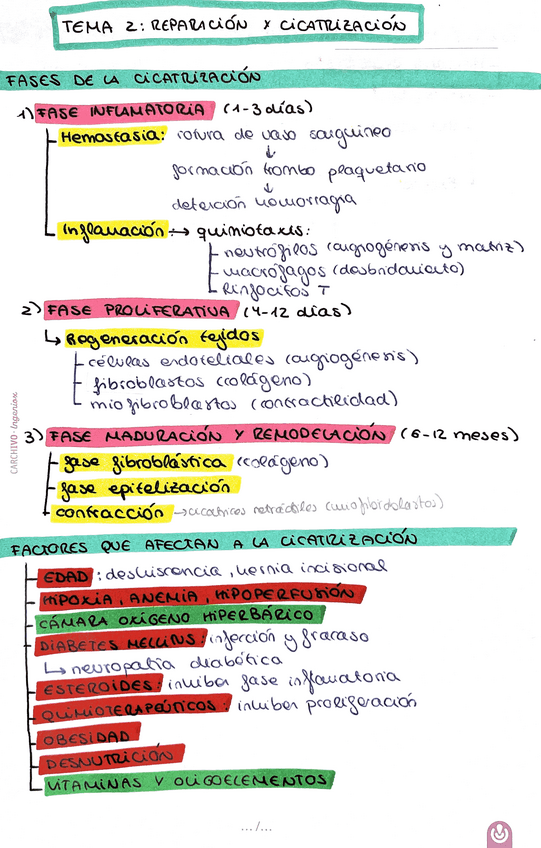 TEMA 2: REPARACIÓN Y CICATRIZACIÓN
FASES DE LA CICATRIZACIÓN
1) FASE INFLAMATORIA (1-3 días)
Hemostasia: rotura de vaso sanguíneo
↓
formación trombo plaquetario
↓
detención hemorragia
Inflamación → quimiotaxis:
neutrófilos (angiogénesis y matriz)
macrófagos (desbridamiento)
linfocitos T
2) FASE PROLIFERATIVA (4-12 días)
↳ Regeneración tejidos
células endoteliales (angiogénesis)
fibroblastos (colágeno)
miofibroblastos (contractilidad)
3) FASE MADURACIÓN Y REMODELACIÓN (6-12 meses)
fase fibroblástica (colágeno)
fase epitelización
contracción → cicatrices retráctiles (miofibroblastos)
CARCHIVO-Ingenian
FACTORES QUE AFECTAN A LA CICATRIZACIÓN
EDAD: dehiscencia, hernia incisional
HIPOXIA, ANEMIA, HIPOPERFUSIÓN
CÁMARA OXÍGENO HIPERBÁRICO
DIABETES MELLITUS: infección y fracaso
↳ neuropatía diabética
ESTEROIDES: inhiben fase inflamatoria
QUIMIOTERAPEÚTICOS: inhiben proliferación
OBESIDAD
DESNUTRICIÓN
VITAMINAS Y OLIGOELEMENTOS
.../...